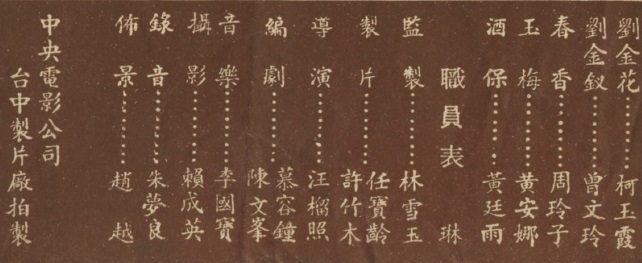 劉金花……柯玉霞
劉金釵……曾文玲
春香……周玲子
玉梅……黃安娜
酒保……黃廷雨
琳
職員表
監製……林雪玉
製片……任寶齡
許竹木
導演……汪榴照
編劇……慕容鐘
陳文峯
音樂……李國寶
攝影……賴成英
錄音……朱夢良
佈景……趙越
中央電影公司
台中製片廠拍製